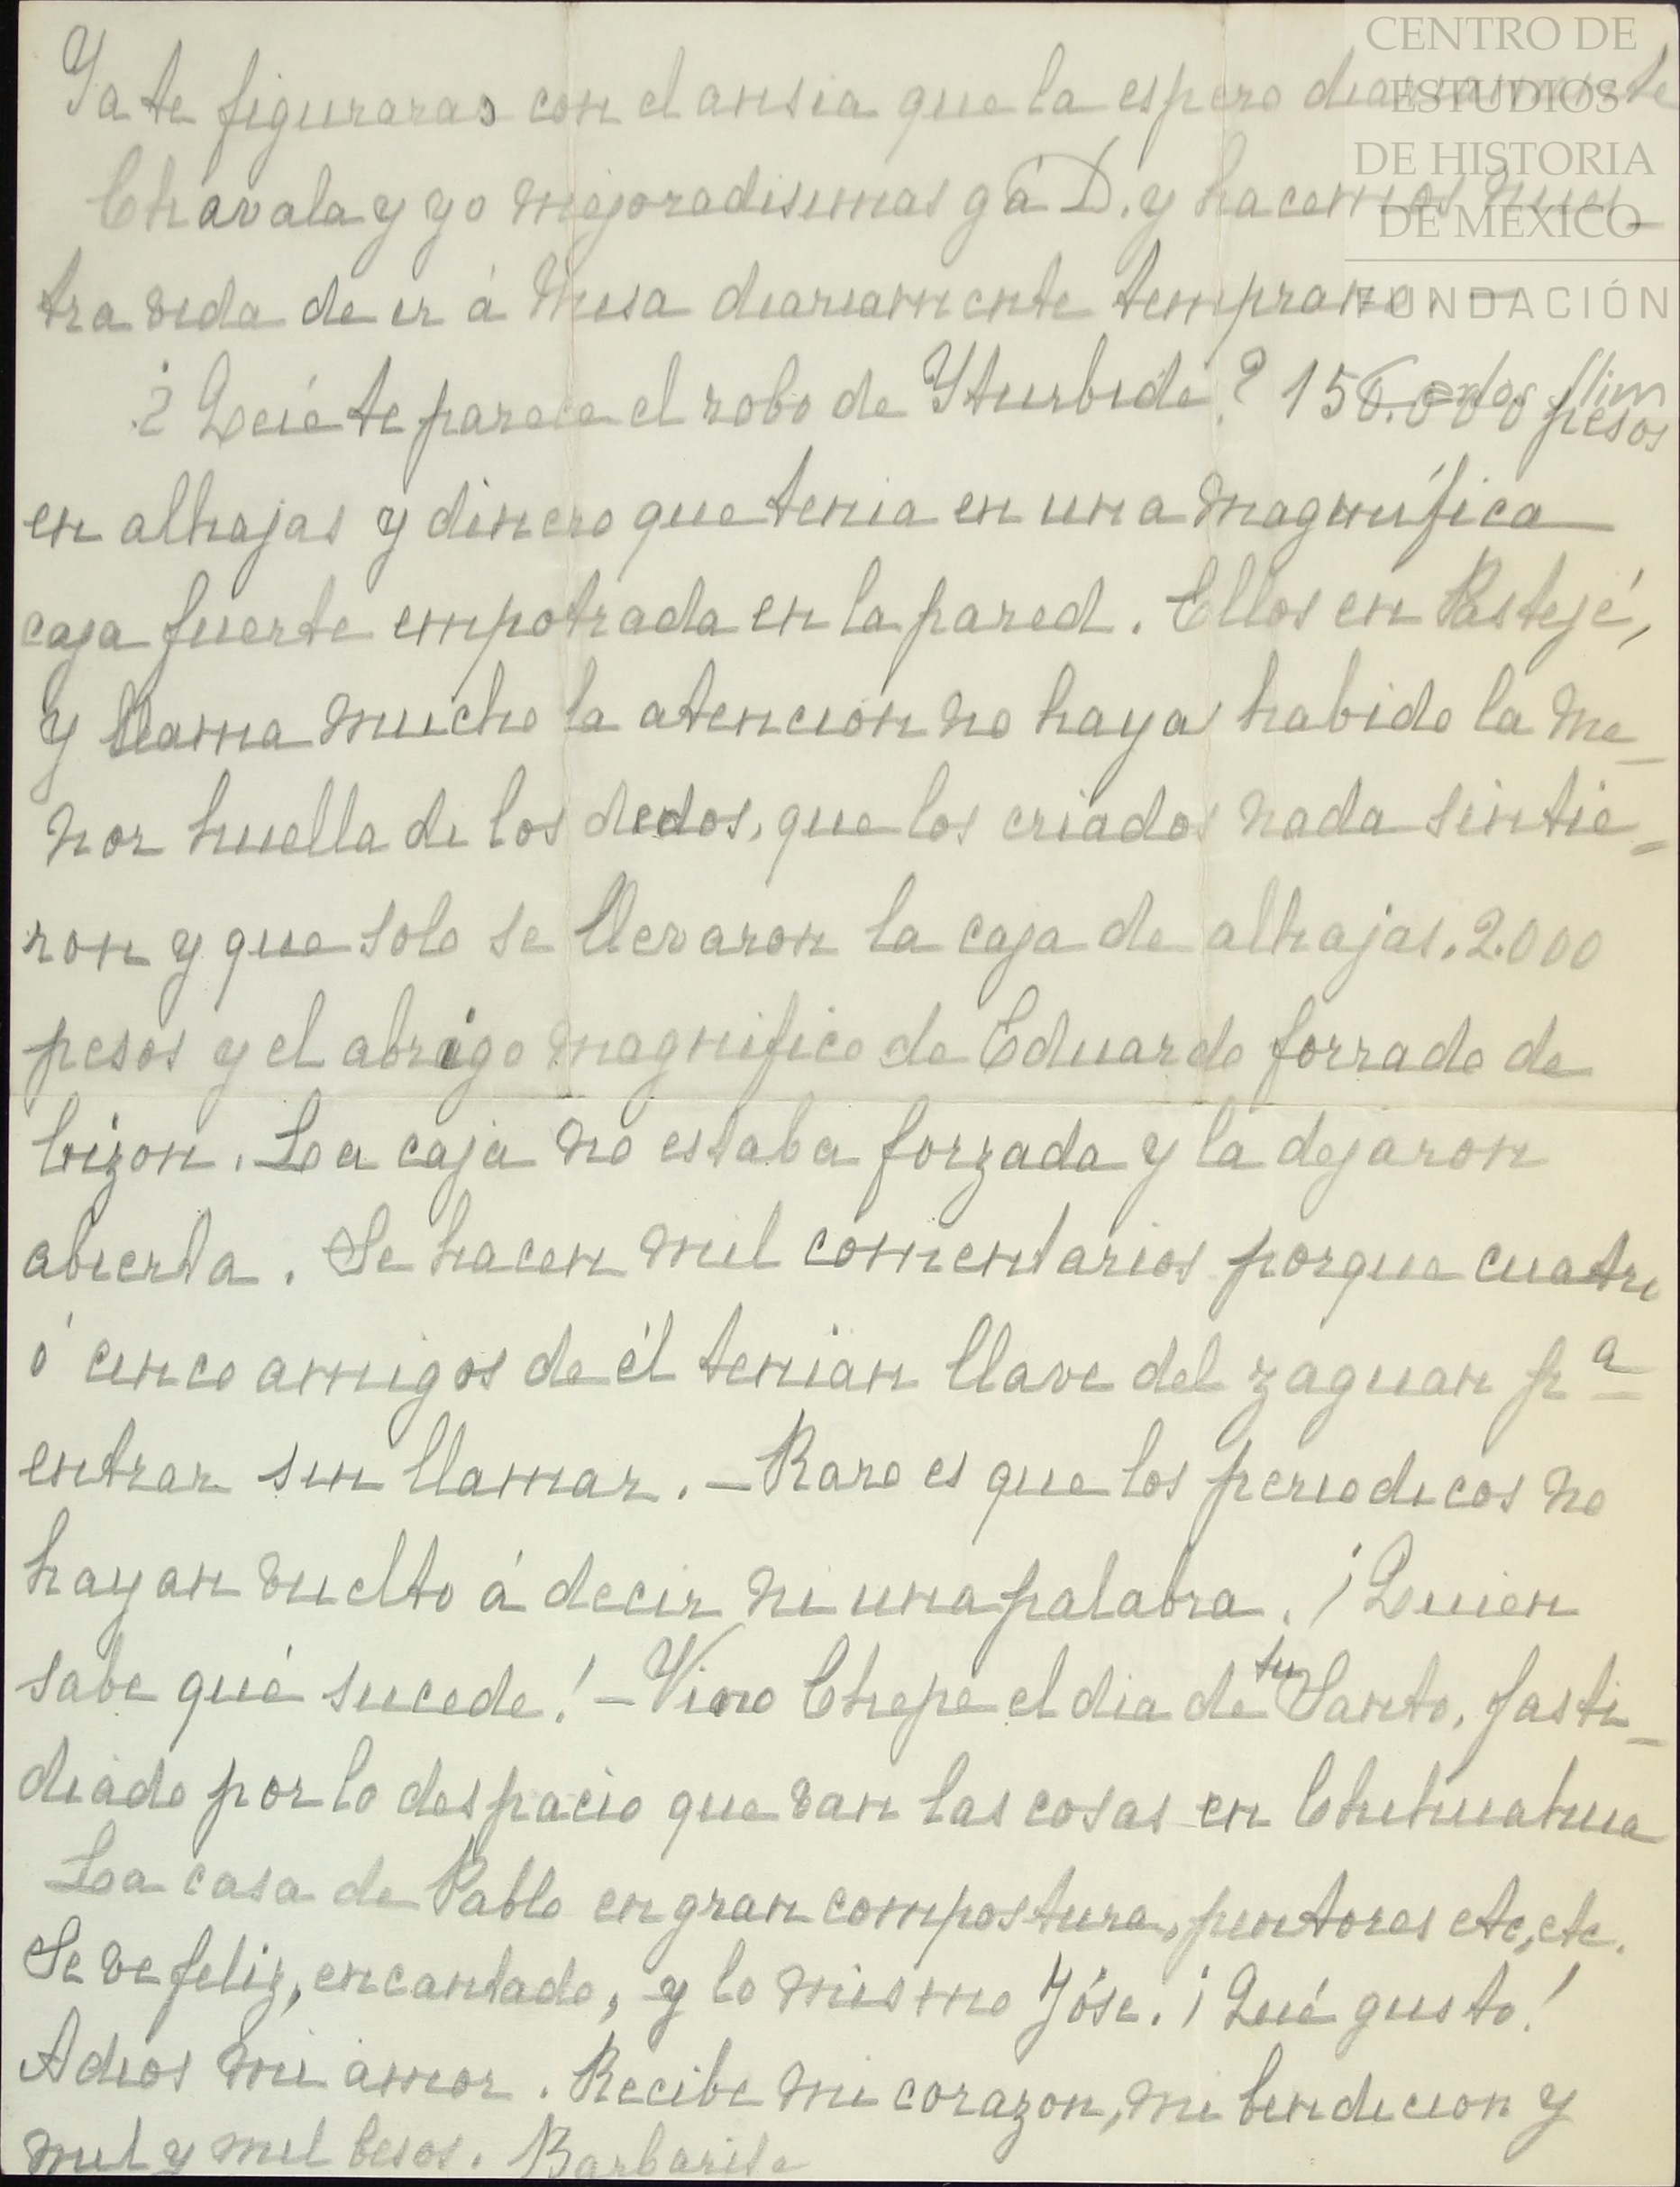 CENTRO DE
ESTUDIOS
DE HISTORIA
DE MÉXICO
FUNDACIÓN
Ya te figuraras con el ansia que la espero diariamente
Chavala y yo mejoradisimas g á D. y hacemos nues_
tra vida de ir á Misa diariamente temprano. —
¿Qué te parece el robo de Yturbide? 150.000 pesos
en alhajas y dinero que tenia en una magnífica
caja fuerte empotrada en la pared. Ellos en Pastejé,
y llama mucho la atención no haya habido la me_
nor huella de los dedos, que los criados nada sintie_
ron y que solo se llevaron la caja de alhajas. 2.000
pesos y el abrigo magnifico de Eduardo forrado de
bizon. La caja no estaba forzada y la dejaron
abierta. Se hacen mil comentarios porque cuatro
ó cinco amigos de él tenian llave del zaguan pª
entrar sin llamar. — Raro es que los periodicos no
hayan vuelto á decir ni una palabra. ¡Quien
sabe qué sucede! — Vino Chepe el dia de su Santo, fasti_
diado por lo despacio que van las cosas en Chihuahua
La casa de Pablo en gran compostura, pintores etc, etc.
Se ve feliz, encantado, y lo mismo Jóse. ¡Qué gusto!
Adios mi amor. Recibe mi corazon, mi bendicion y
mil y mil besos. Barbarita